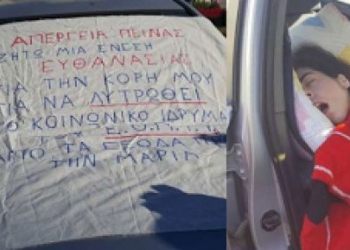 ΑΠΕΡΓΕΙΑ ΠΕΙΝΑΣ
ΖΗΤΩ ΜΙΑ ΕΝΕΣΗ
ΕΥΘΑΝΑΣΙΑΣ
ΓΙΑ ΤΗΝ ΚΟΡΗ ΜΟΥ
ΓΙΑ ΝΑ ΛΥΤΡΩΘΕΙ
ΤΟ ΚΟΙΝΩΝΙΚΟ ΙΔΡΥΜΑ
ΑΠΟ ΤΑ ΕΞΟΔΑ
ΤΗΝ ΜΑΡΙΑ